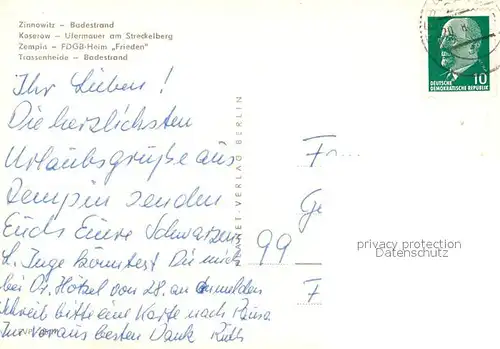 Zinnowitz – Badestrand
Koserow – Ufermauer am Streckelberg
Zempin – FDGB-Heim „Frieden"
Trassenheide – Badestrand
DEUTSCHE
DEMOKRATISCHE REPUBLIK
10
Ihr Lieben!
Die herzlichsten
Urlaubsgrüße aus
Zempin senden
Euch Eure Schwarzen
L. Inge könntest Du mich
bei Dr. Hötzel von 28. an anmelden
Schreib bitte eine Karte nach Pausa
Im voraus besten Dank Ruth
PLANET-VERLAG BERLIN
Fr...
Ge
99
F
privacy protection
Datenschutz